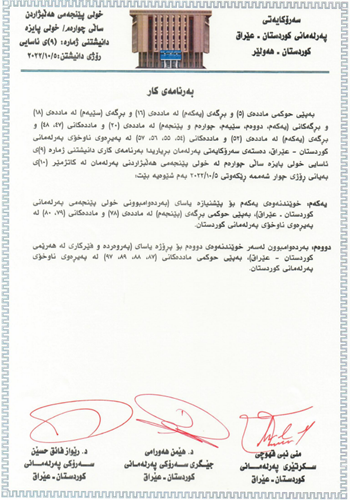 سەرۆکایەتی
پەرلەمانی کوردستان - عێراق
کوردستان - هەولێر
خولی پێنجەمی هەڵبژاردن
ساڵی چوارەم/ خولی پایزە
دانیشتنی ژمارە: (٩)ی ئاسایی
ڕۆژی دانیشتن: ٢٠٢٢/١٠/٥
بەرنامەی کار
بەپێی حوکمی ماددەی (٥) و بڕگەی (یەکەم) لە ماددەی (١٦) و بڕگەی (سێیەم) لە ماددەی (١٨)
و بڕگەکانی (یەکەم، دووەم، سێیەم، چوارەم و پێنجەم) لە ماددەی (٢٠) و ماددەکانی (٤٧، ٤٨) و
بڕگەی (یەکەم) لە ماددەی (٥٢) و ماددەکانی (٥٤، ٥٥، ٥٦، ٥٧) لە پەیڕەوی ناوخۆی پەرلەمانی
کوردستان - عێراق، دەستەی سەرۆکایەتی پەرلەمان بڕیاریدا بەرنامەی کاری دانیشتنی ژمارە (٩)ی
ئاسایی خولی پایزەی ساڵی چوارەم لە خولی پێنجەمی هەڵبژاردنی پەرلەمان لە کاتژمێر (١٠)ی
بەیانی ڕۆژی چوار شەممە ڕێکەوتی ٢٠٢٢/١٠/٥ بەم شێوەیە بێت:
یەکەم: خوێندنەوەی یەکەم بۆ پێشنیازە یاسای (بەردەوامبوونی خولی پێنجەمی پەرلەمانی
کوردستان - عێراق)، بەپێی حوکمی بڕگەی (پێنجەم) لە ماددەی (٧٨) و ماددەکانی (٧٩، ٨٠) لە
پەیڕەوی ناوخۆی پەرلەمانی کوردستان.
دووەم: بەردەوامبوون لەسەر خوێندنەوەی دووەم بۆ پڕۆژە یاسای (پەروەردە و فێرکاری لە هەرێمی
کوردستان - عێراق)، بەپێی حوکمی ماددەکانی (٨٧، ٨٨، ٨٩، ٩٧) لە پەیڕەوی ناوخۆی
پەرلەمانی کوردستان.
منی نبی قهوچی
سکرتێری پەرلەمانی
کوردستان - عێراق
د. هێمن هەورامی
جێگری سەرۆکی پەرلەمانی
کوردستان - عێراق
د. ڕێواز فائق حسێن
سەرۆکی پەرلەمانی
کوردستان - عێراق